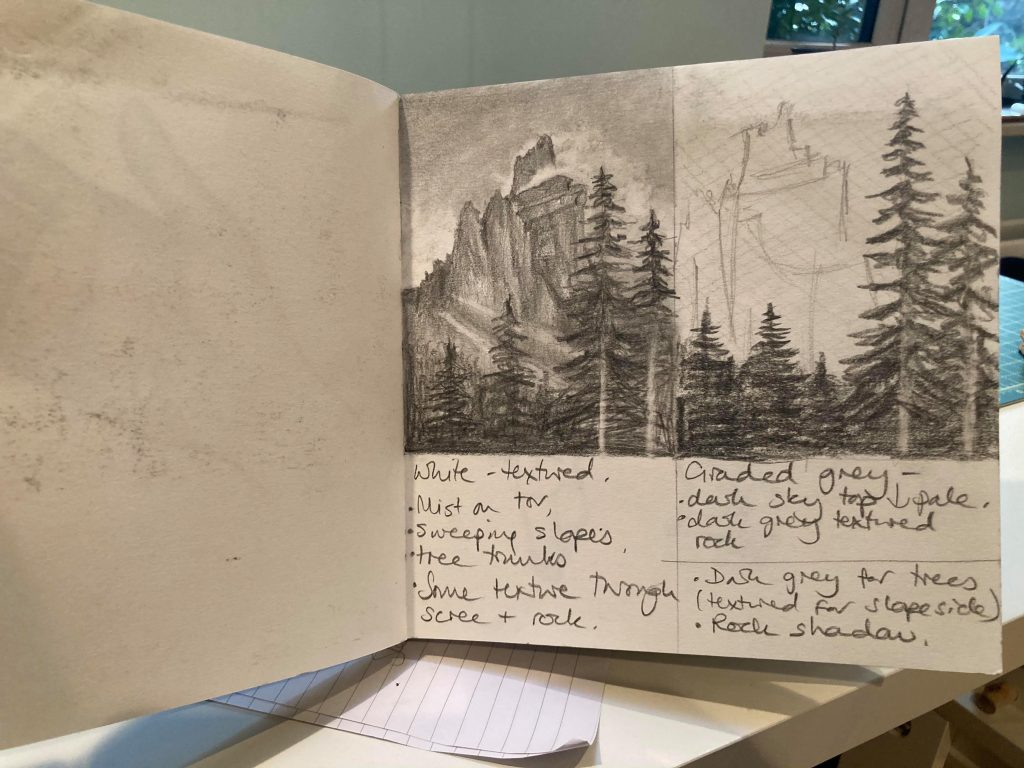 White - textured.
• Mist on tor,
• Sweeping slopes,
• tree trunks
• Some texture through
scree + rock.
Graded grey -
• dark sky top ↓ pale.
• dark grey textured
rock
• Dark grey for trees
(textured for slopeside)
• Rock shadow.